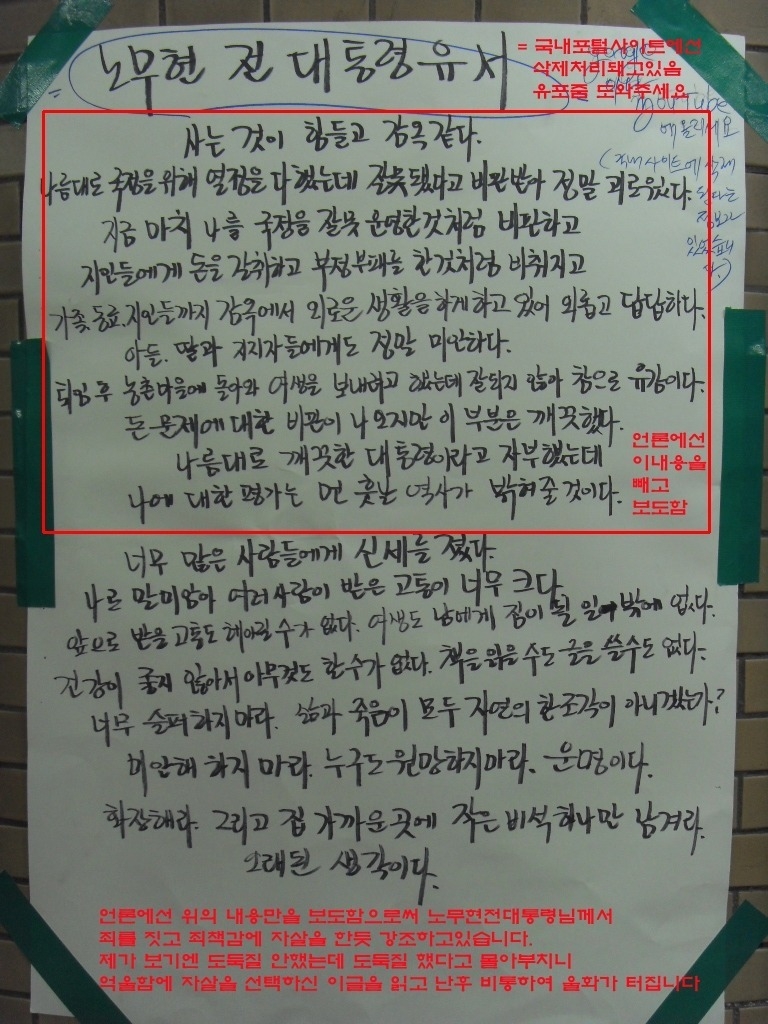 노무현 전 대통령 유서
= 국내포털사이트에선
삭제처리돼고있음
유포줌 도와주세요
you tube
에 올리세요
(국내사이트에 삭제
된다는
정보가
있었습니
다.)
사는 것이 힘들고 감옥같다.
나름대로 국정을 위해 열정을 다했는데 잘못됐다고 비판받아 정말 괴로웠다.
지금 마치 나를 국정을 잘못 운영한것처럼 비판하고
지인들에게 돈을 갈취하고 부정부패를 한것처럼 비춰지고
가족, 동료, 지인들까지 감옥에서 외로운 생활을 하게하고 있어 외롭고 답답하다.
아들, 딸과 지지자들에게도 정말 미안하다.
퇴임 후 농촌마을에 돌아와 여생을 보내려고 했는데 잘되지 않아 참으로 유감이다.
돈 문제에 대한 비판이 나오지만 이 부분은 깨끗했다.
나름대로 깨끗한 대통령이라고 자부했는데
나에 대한 평가는 먼 훗날 역사가 밝혀줄 것이다.
언론에선
이내용을
빼고
보도함
너무 많은 사람들에게 신세를 졌다.
나로 말미암아 여러사람이 받은 고통이 너무 크다
앞으로 받을 고통도 헤아릴 수가 없다. 여생도 남에게 짐이 될 일 밖에 없다.
건강이 좋지 않아서 아무것도 할수가 없다. 책을 읽을 수도 글을 쓸수도 없다.
너무 슬퍼하지마라. 삶과 죽음이 모두 자연의 한조각이 아니겠는가?
미안해 하지 마라. 누구도 원망하지마라. 운명이다.
화장해라. 그리고 집 가까운 곳에 작은 비석 하나만 남겨라.
오래된 생각이다.
언론에선 위의 내용만을 보도함으로써 노무현전대통령님께서
죄를 짓고 죄책감에 자살을 한듯 강조하고있습니다.
제가 보기엔 도둑질 안했는데 도둑질 했다고 몰아부치니
억울함에 자살을 선택하신 이글을 읽고 난후 비통하여 울화가 터집니다